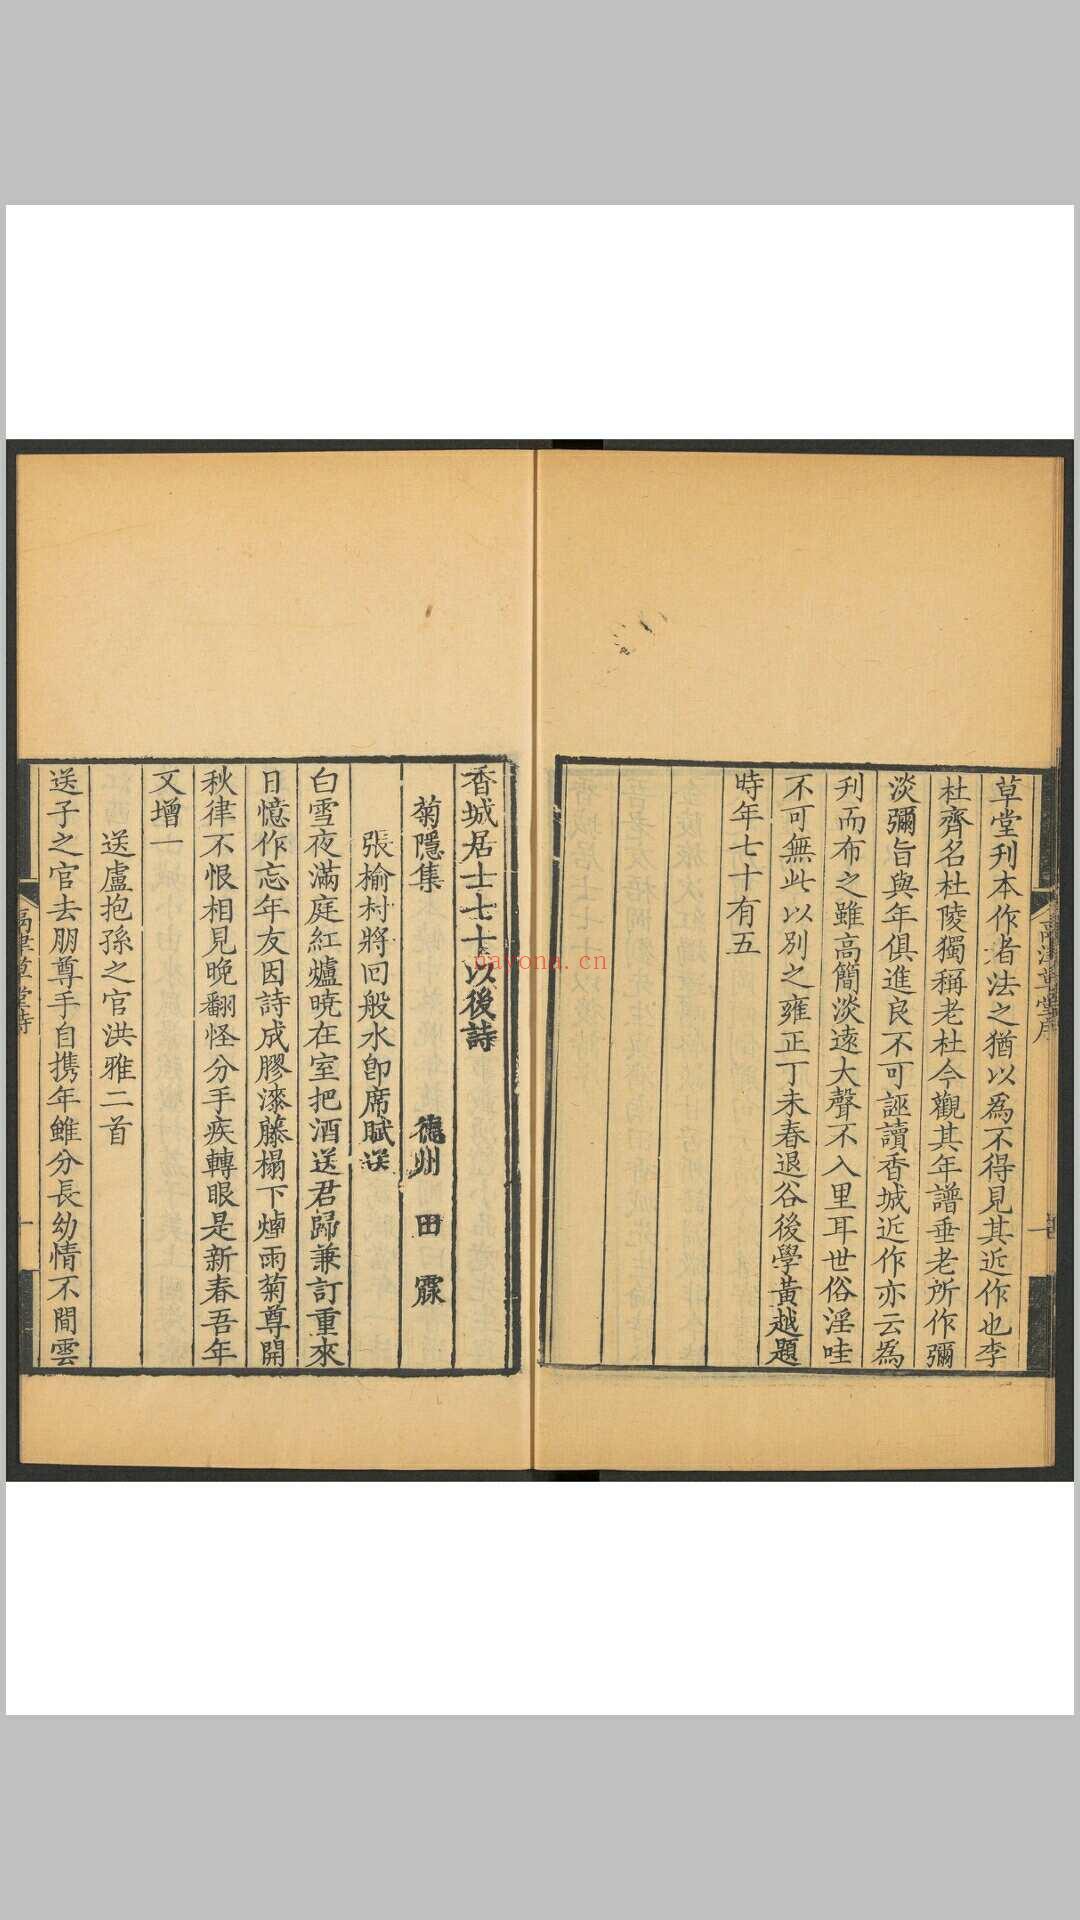 草堂刋本作者法之猶以為不得見其近作也李
杜齊名杜陵獨稱老杜今觀其年譜垂老所作彌
淡彌旨與年俱進良不可誣讀香城近作亦云為
刋而布之雖高簡淡遠大聲不入里耳世俗淫哇
不可無此以別之雍正丁未春退谷後學黃越題
時年七十有五
香城居士七十以後詩
菊隱集　德州　田霡
張榆村將回般水卽席賦送
白雪夜滿庭紅爐曉在室把酒送君歸兼訂重來
日憶作忘年友因詩成膠漆藤榻下煙雨菊尊開
秋律不恨相見晚翻怪分手疾轉眼是新春吾年
又增一
送盧抱孫之官洪雅二首
送子之官去朋尊手自携年雖分長幼情不間雲
鬲津草堂詩
一
nayona.cn